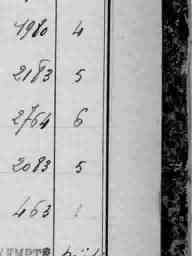 1980 4
2183 5
2764 6
2083 5
463